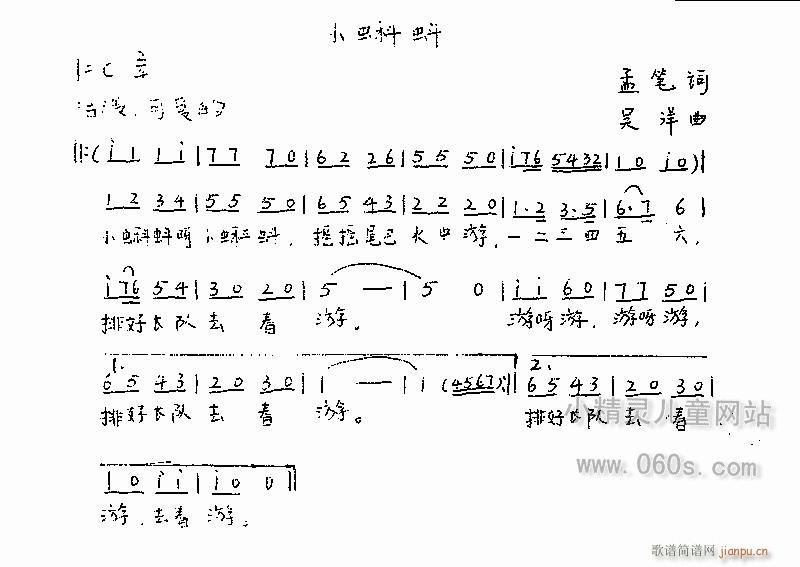 小蝌蚪
1=C 2/4
孟笔 词
活泼、可爱的
吴洋 曲
‖:( i i i i | 7 7 7 0 | 6 2 2 6 | 5 5 5 0 | i76 5432 | 1 0 i 0 )|
1 2 3 4 | 5 5 5 0 | 6 5 4 3 | 2 2 2 0 | 1·2 3·5 | 6·7 6 |
小蝌蚪呀小蝌蚪，摇摇尾巴水中游，一二三四五六，
i76 5 4 | 3 0 2 0 | 5 — | 5 0 | i i 6 0 | 7 7 5 0 |
排好长队去春游。游呀游，游呀游，
1. 6 5 4 3 | 2 0 3 0 | i — | i (4567) :‖ 2. 6 5 4 3 | 2 0 3 0 |
排好长队去春游。排好长队去春
小精灵儿童网站
www.060s.com
i 0 i i | i 0 0 0 ‖
游，去春游。
歌谱简谱网
jianpu.cn